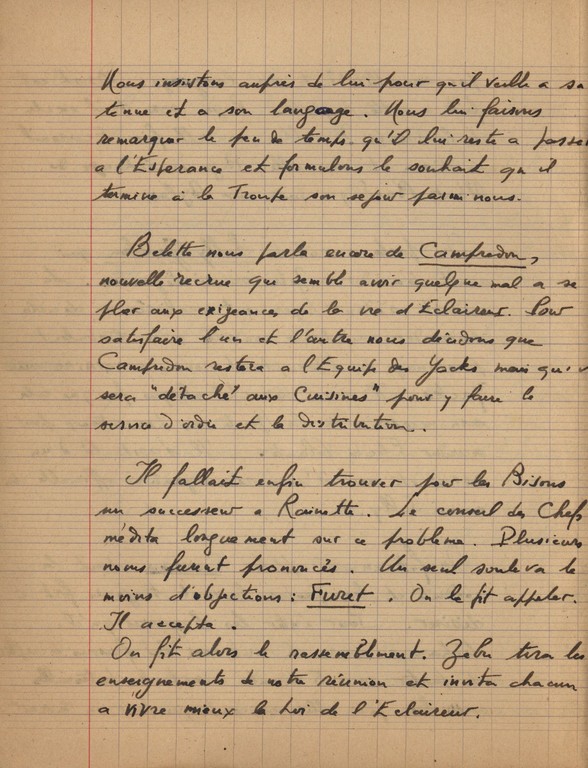 Nous insistons auprès de lui pour qu'il veille a sa
tenue et a son langage. Nous lui faisons
remarquer le peu de temps qu'il lui reste a passer
a l'Esperance et formulons le souhait qu'il
termine à la Troupe son sejour parmi nous.
Belette nous parla encore de Campredon,
nouvelle recrue qui semble avoir quelque mal a se
plier aux exigeances de la vie d'Eclaireur. Pour
satisfaire l'un et l'autre nous décidons que
Campredon restera a l'Equipe des Yacks mais qu'il
sera "détaché aux Cuisines" pour y faire le
service d'ordre et la distribution.
Il fallait enfin trouver pour les Bisons
un successeur a Rainette. Le conseil des Chefs
médita longuement sur ce probleme. Plusieurs
noms furent prononcés. Un seul souleva le
moins d'objections : Furet. On le fit appeler.
Il accepta.
On fit alors le rassemblement. Zebu tira les
enseignements de notre réunion et invita chacun
a vivre mieux la Loi de l'Eclaireur.